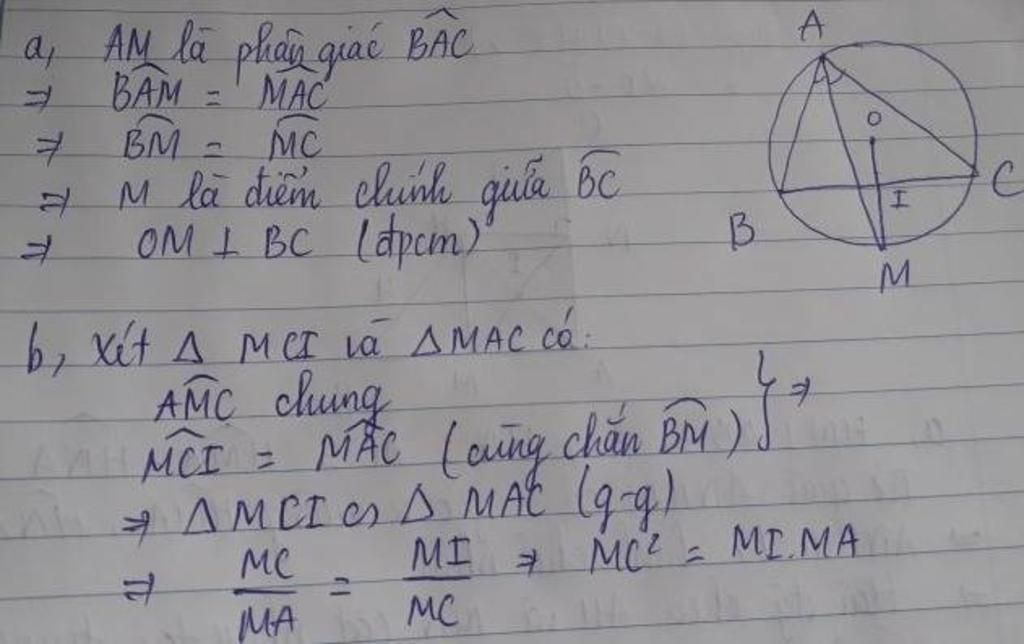 a, AM là phân giác \widehat{BAC}
⇒ \widehat{BAM} = \widehat{MAC}
⇒ \widehat{BM} = \widehat{MC}
⇒ M là điểm chính giữa \widehat{BC}
⇒ OM ⊥ BC (đpcm)
A
O
B
I
C
M
b, Xét Δ MCI và Δ MAC có:
\widehat{AMC} chung
\widehat{MCI} = \widehat{MAC} (cùng chắn \widehat{BM}) } ⇒
⇒ Δ MCI ∽ Δ MAC (g-g)
⇒ \frac{MC}{MA} = \frac{MI}{MC} ⇒ MC² = MI.MA